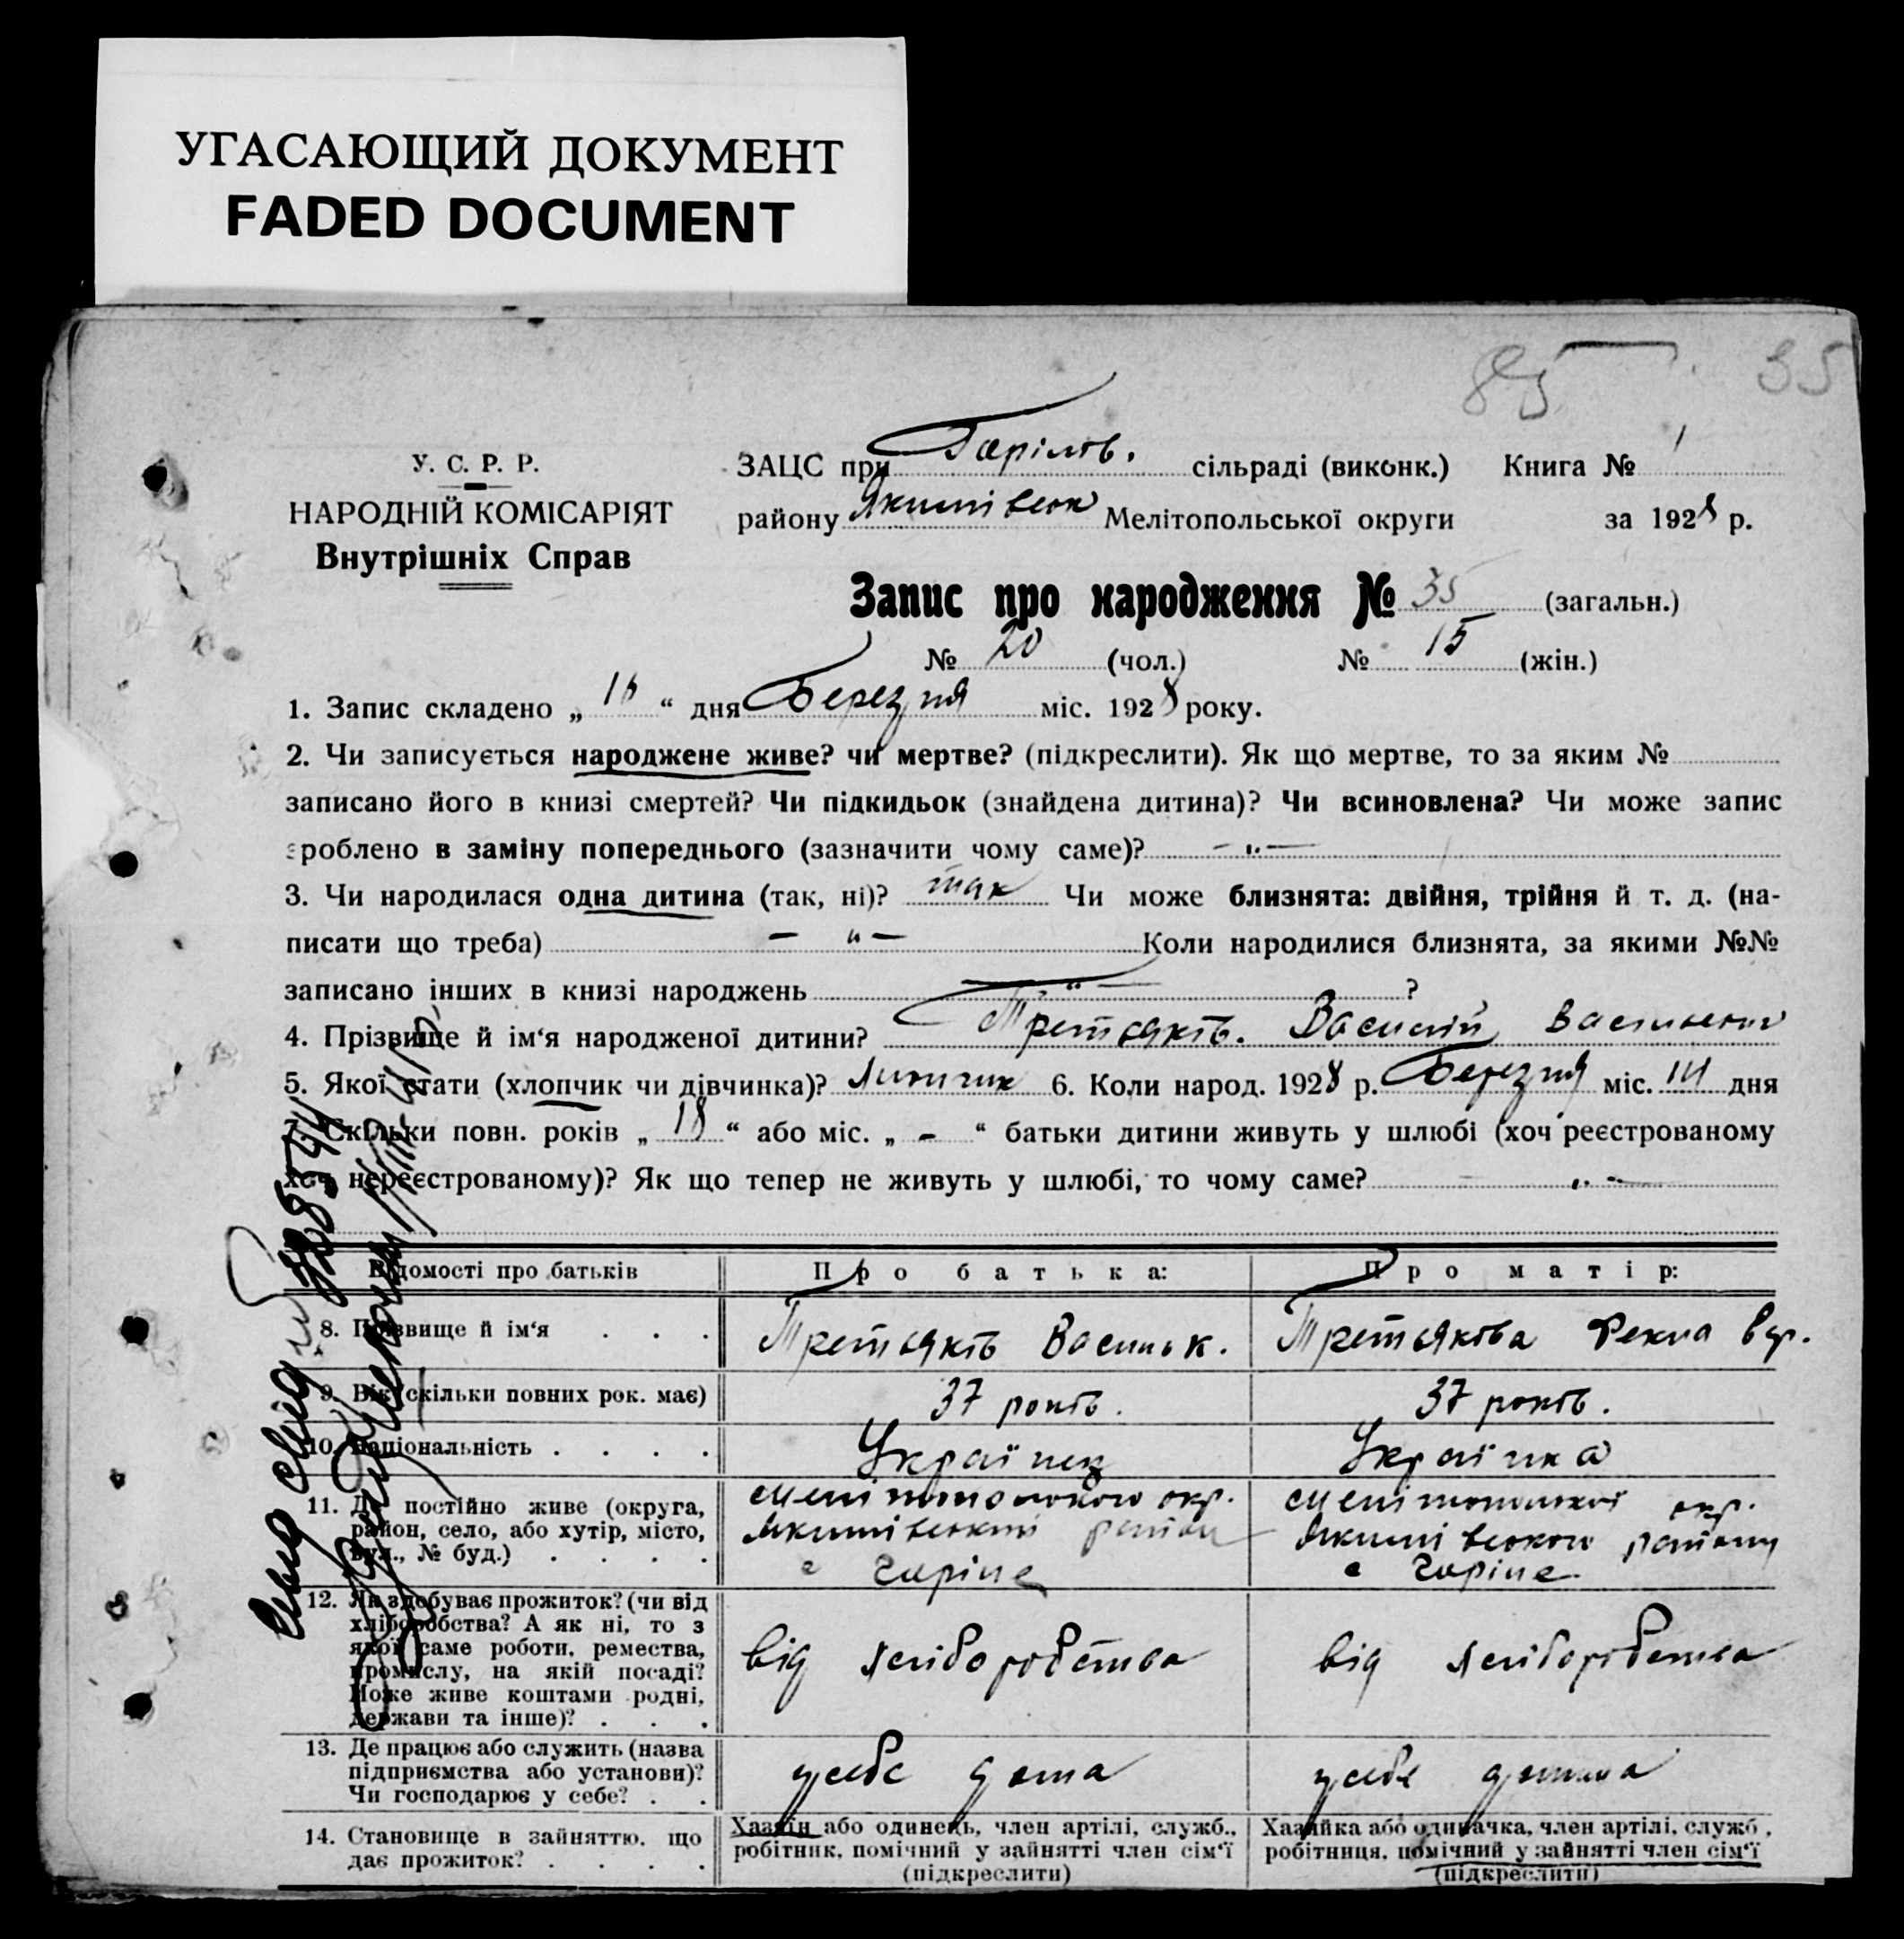 УГАСАЮЩИЙ ДОКУМЕНТ
FADED DOCUMENT
85 35
У. С. Р. Р.
НАРОДНІЙ КОМІСАРІЯТ
Внутрішніх Справ
ЗАЦС при сільраді (виконк.) Книга № 1
району Мелітопольської округи за 1928 р.
Запис про народження № 35 (загальн.)
№ 20 (чол.) № 15 (жін.)
1. Запис складено „ “ дня Березня міс. 1928 року.
2. Чи записується народжене живе? чи мертве? (підкреслити). Як що мертве, то за яким №
записано його в книзі смертей? Чи підкидьок (знайдена дитина)? Чи всиновлена? Чи може запис
зроблено в заміну попереднього (зазначити чому саме)? – „ –
3. Чи народилася одна дитина (так, ні)? так Чи може близнята: двійня, трійня й т. д. (на-
писати що треба) – „ – Коли народилися близнята, за якими №№
записано інших в книзі народжень – „ – ?
4. Прізвище й ім‘я народженої дитини? Третьяків. Василій
5. Якої стати (хлопчик чи дівчинка)? 6. Коли народ. 1928 р. Березня міс. 14 дня
7. Скільки повн. років „ 18 “ або міс. „ – “ батьки дитини живуть у шлюбі (хоч реєстрованому
хоч нереєстрованому)? Як що тепер не живуть у шлюбі, то чому саме? „ –
Відомості про батьків Про батька: Про матір:
8. Прізвище й ім‘я . . . Третьяків Василь К. Третьякова Текла
9. Вік (скільки повних рок. має) 37 років. 37 років.
10. Національність . . . . Українец Українка
11. Де постійно живе (округа, район, село, або хутір, місто, вул., № буд.) . . . .
окр. окр.
с с
12. Як здобуває прожиток? (чи від хліборобства? А як ні, то з якої саме роботи, ремества, промислу, на якій посаді? Може живе коштами родні, держави та інше)? . . .
від хліборобства від хліборобства
13. Де працює або служить (назва підприємства або установи)? Чи господарює у себе? . .
у себе дома у себе дома
14. Становище в зайняттю, що дає прожиток? . . . .
Хазяїн або одинець, член артілі, служб., робітник, помічний у зайнятті член сім‘ї (підкреслити)
Хазяйка або одиначка, член артілі, служб., робітниця, помічний у зайнятті член сім‘ї (підкреслити)